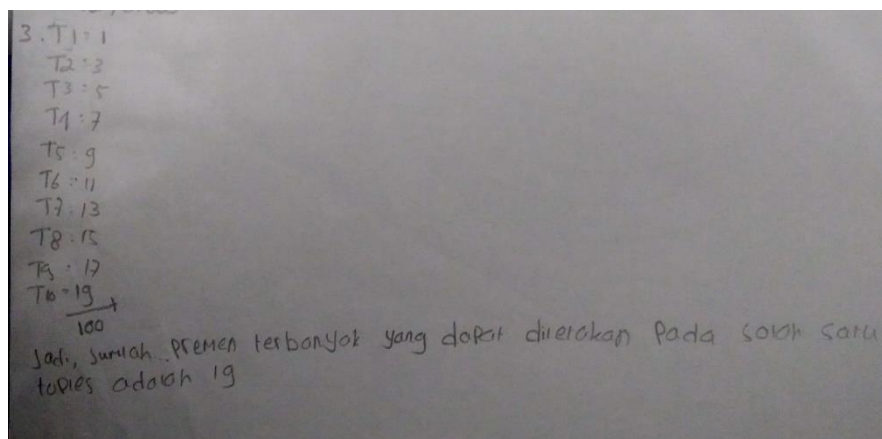 3. T1 : 1
T2 : 3
T3 : 5
T4 : 7
T5 : 9
T6 : 11
T7 : 13
T8 : 15
T9 : 17
T10 = 19
+
100
Jadi, Jumlah Premen terbanyak yang dapat diletakan Pada salah satu
toples adalah 19